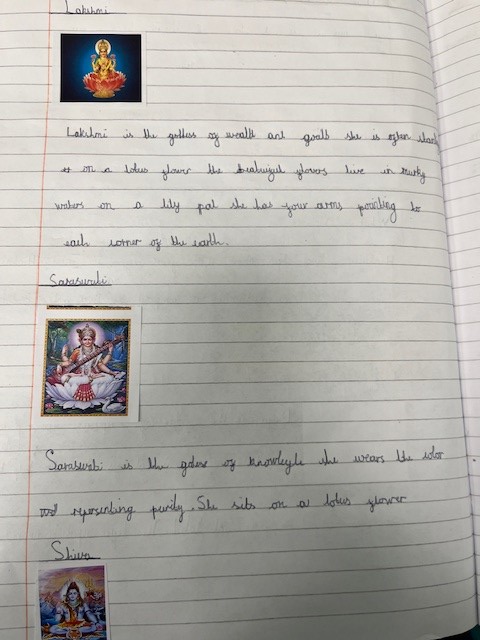 Lakshmi
Lakshmi is the goddess of wealth and goals she is often
on a lotus flower the flowers live in murky
waters on a lily pad she has four arms pointing to
each corner of the earth.
Saraswati
Saraswati is the of knowledge she wears the color
representing purity. She sits on a lotus flower
Shiva